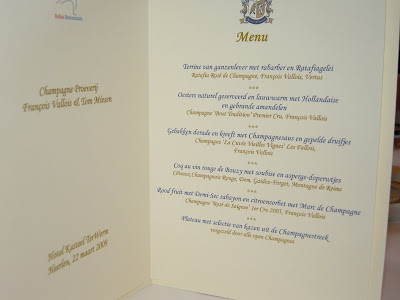 Relais Restaurants
Champagne Proeverij
François Vallois & Tom Miesen
Hotel Kasteel TerWorm
Heerlen, 22 maart 2009
Menu
Terrine van ganzenlever met rabarber en Ratafiagelei
Ratafia Rosé de Champagne, François Vallois, Vertus
***
Oesters naturel geserveerd en lauwwarm met Hollandaise
en gebrande amandelen
Champagne 'Brut Tradition' Premier Cru, François Vallois
***
Gebakken dorade en kreeft met Champagnesaus en gepelde druifjes
Champagne 'La Cuvée Vieilles Vignes' Les Fallois,
François Vallois
***
Coq au vin rouge de Bouzy met soubise en asperge-
Côteaux Champagnois Rouge, Dom. Montagne de Reims
***
Rood fruit met Demi-Sec sabayon en citroensorbet met Marc de Champagne
Champagne 'Rosé de Saignée' 1er Cru 2005, François Vallois
***
Plateau met selectie van kazen uit de Champagnestreek
vergezeld door alle open Champagnes